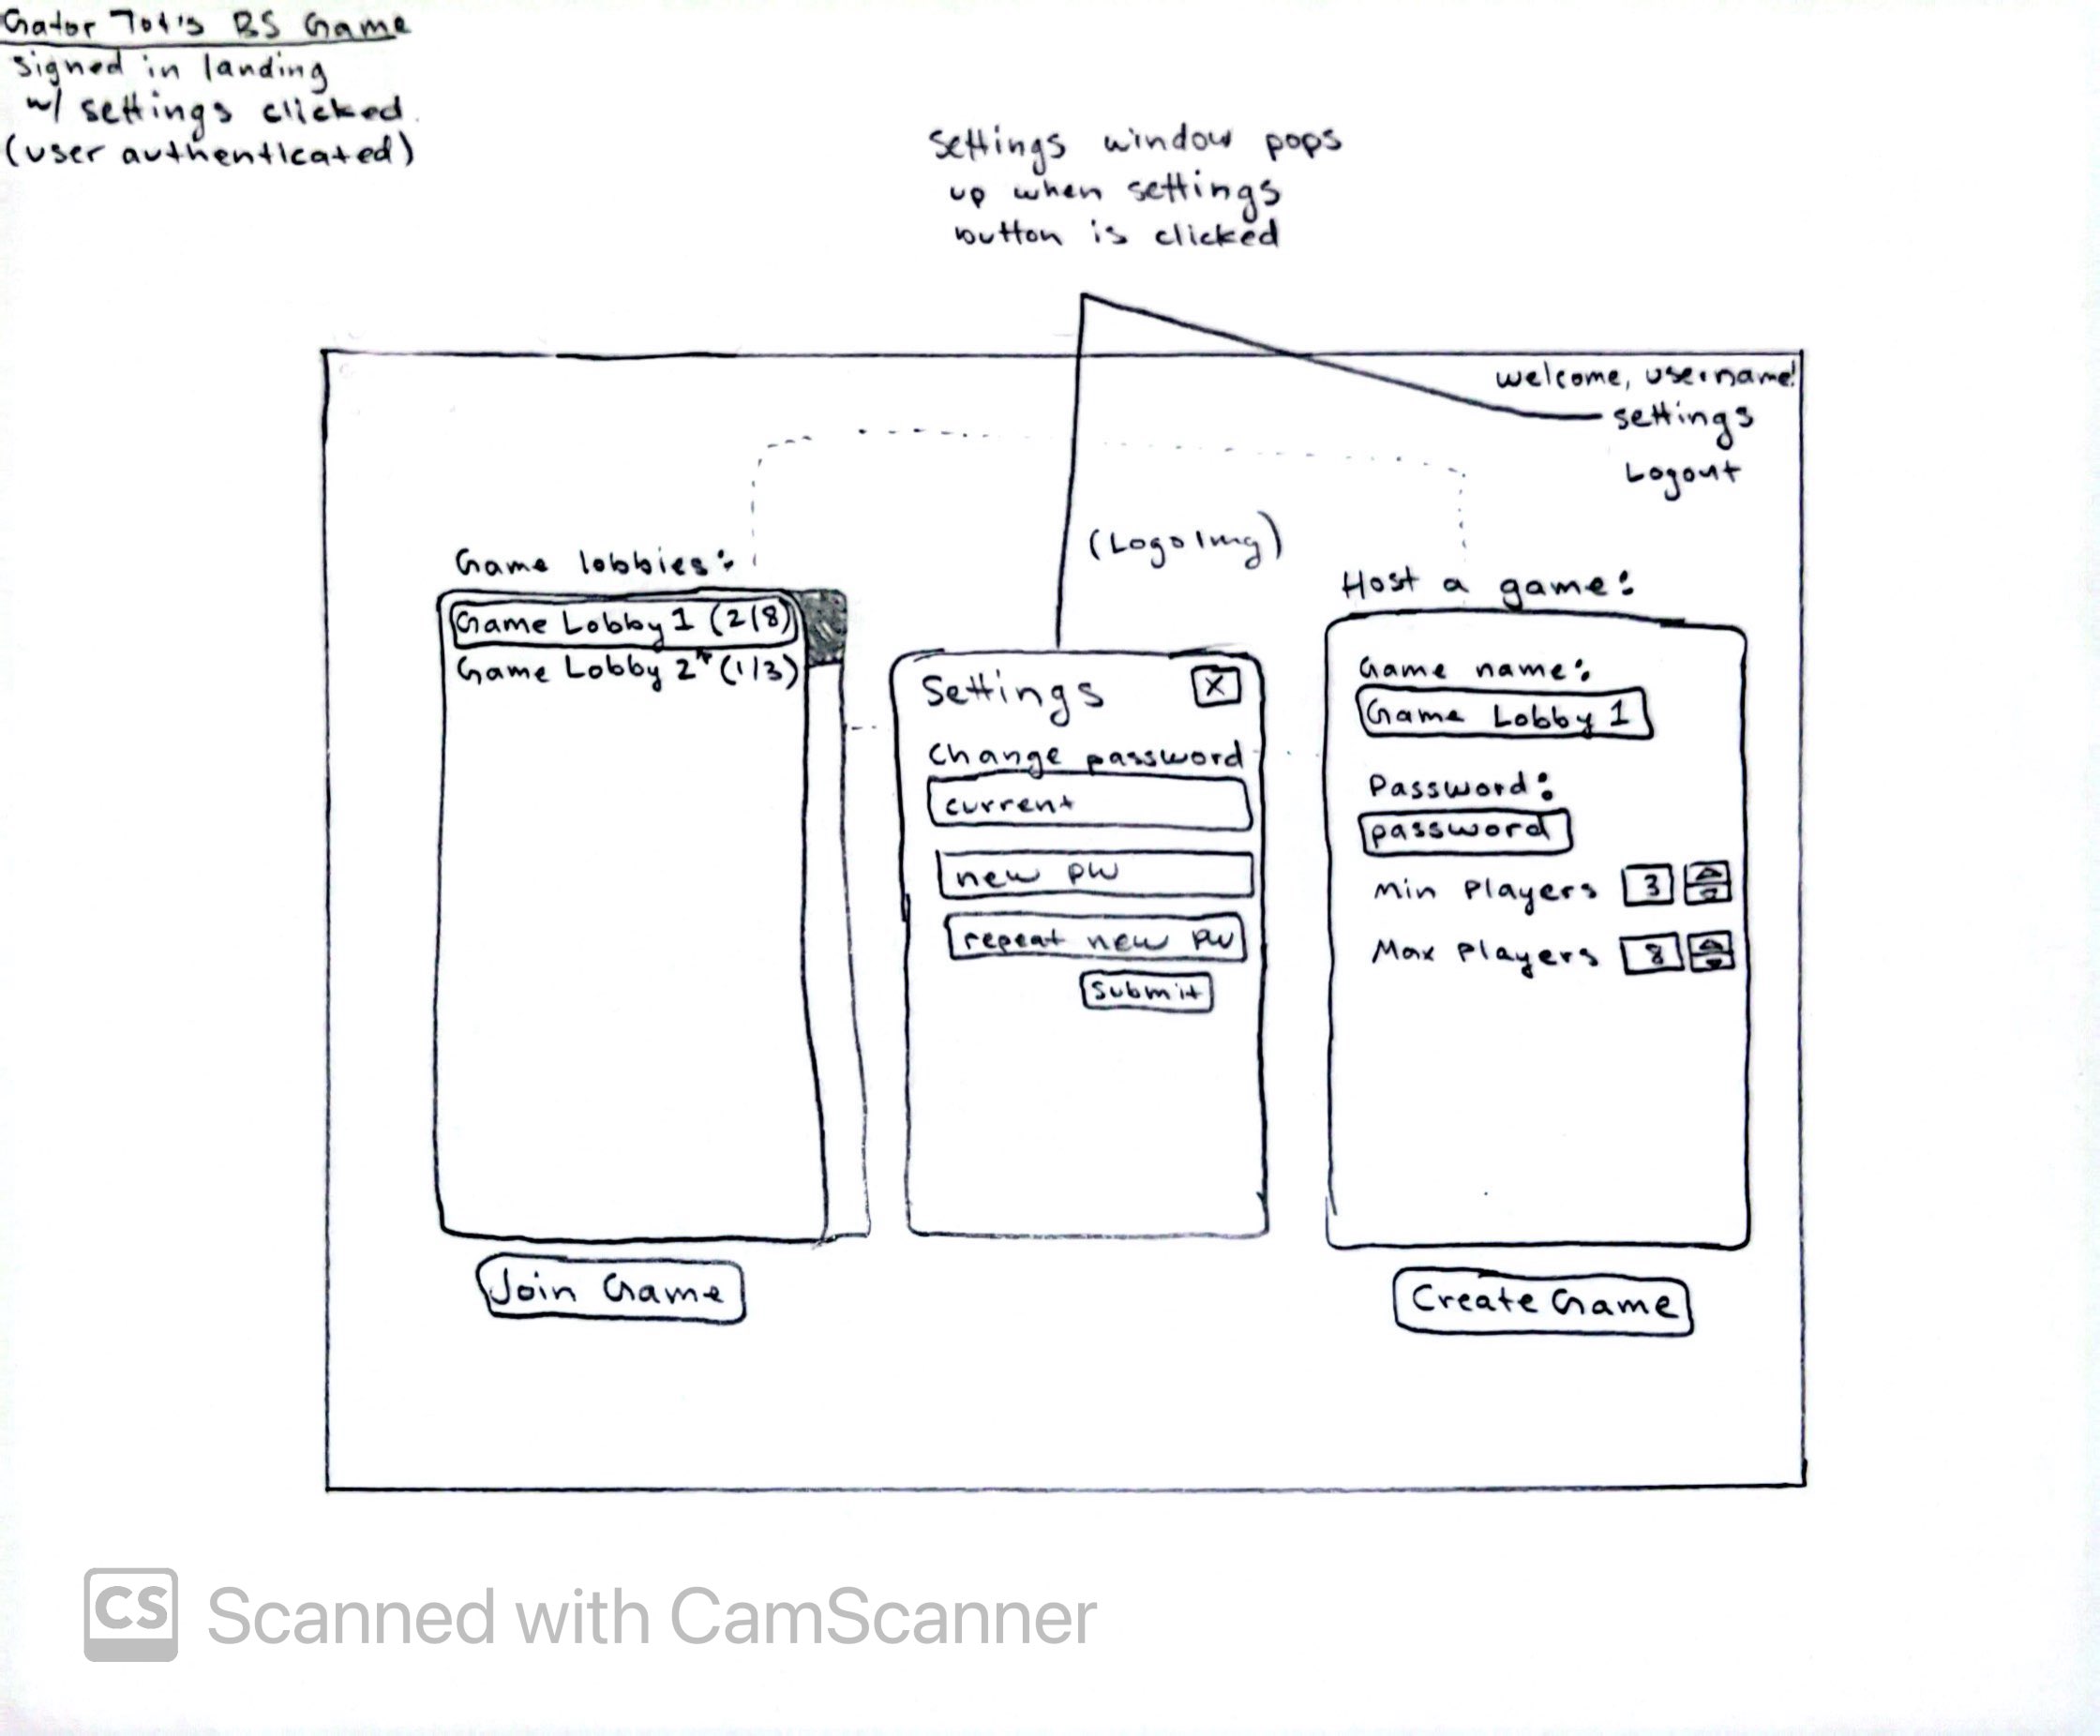 Gator Tot's BS Game
signed in landing
w/ settings clicked
(user authenticated)
settings window pops
up when settings
button is clicked
welcome, username!
settings
Logout
(Logo Img)
Game lobbies:
Game Lobby 1 (2/8)
Game Lobby 2 (1/3)
Settings
X
Change password
current
new pw
repeat new pw
submit
Host a game:
Game name:
Game Lobby 1
Password:
password
Min Players 3
Max Players 8
Join Game
Create Game
CS Scanned with CamScanner